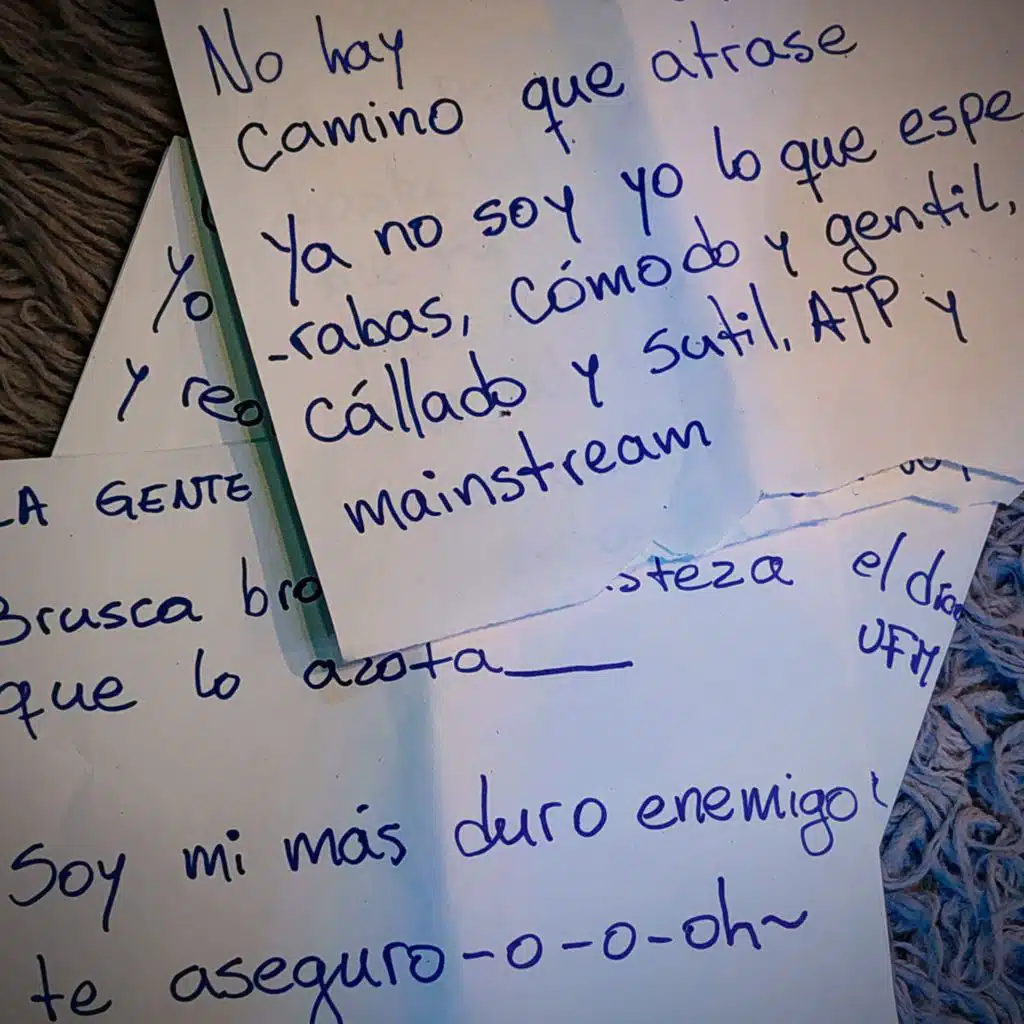 No hay
camino que atrase
Ya no soy yo lo que espe
-rabas, cómodo y gentil,
cállado y sutil. ATP y
mainstream
Yo
Y reo
LA GENTE
Brusca bro steza el día
que lo azota___ UFM
Soy mi más duro enemigo!
te aseguro-o-o-oh~